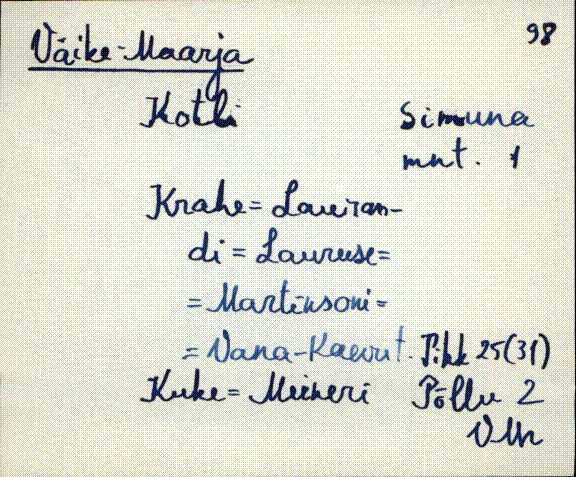 Väike-Maarja 98
Kotli Simuna
mnt. 1
Krahe = Lauran-
di = Lauruse =
= Martinsoni =
= Vana-Kaevut. Pikk 25(31)
Kuke = Meikeri Põllu 2